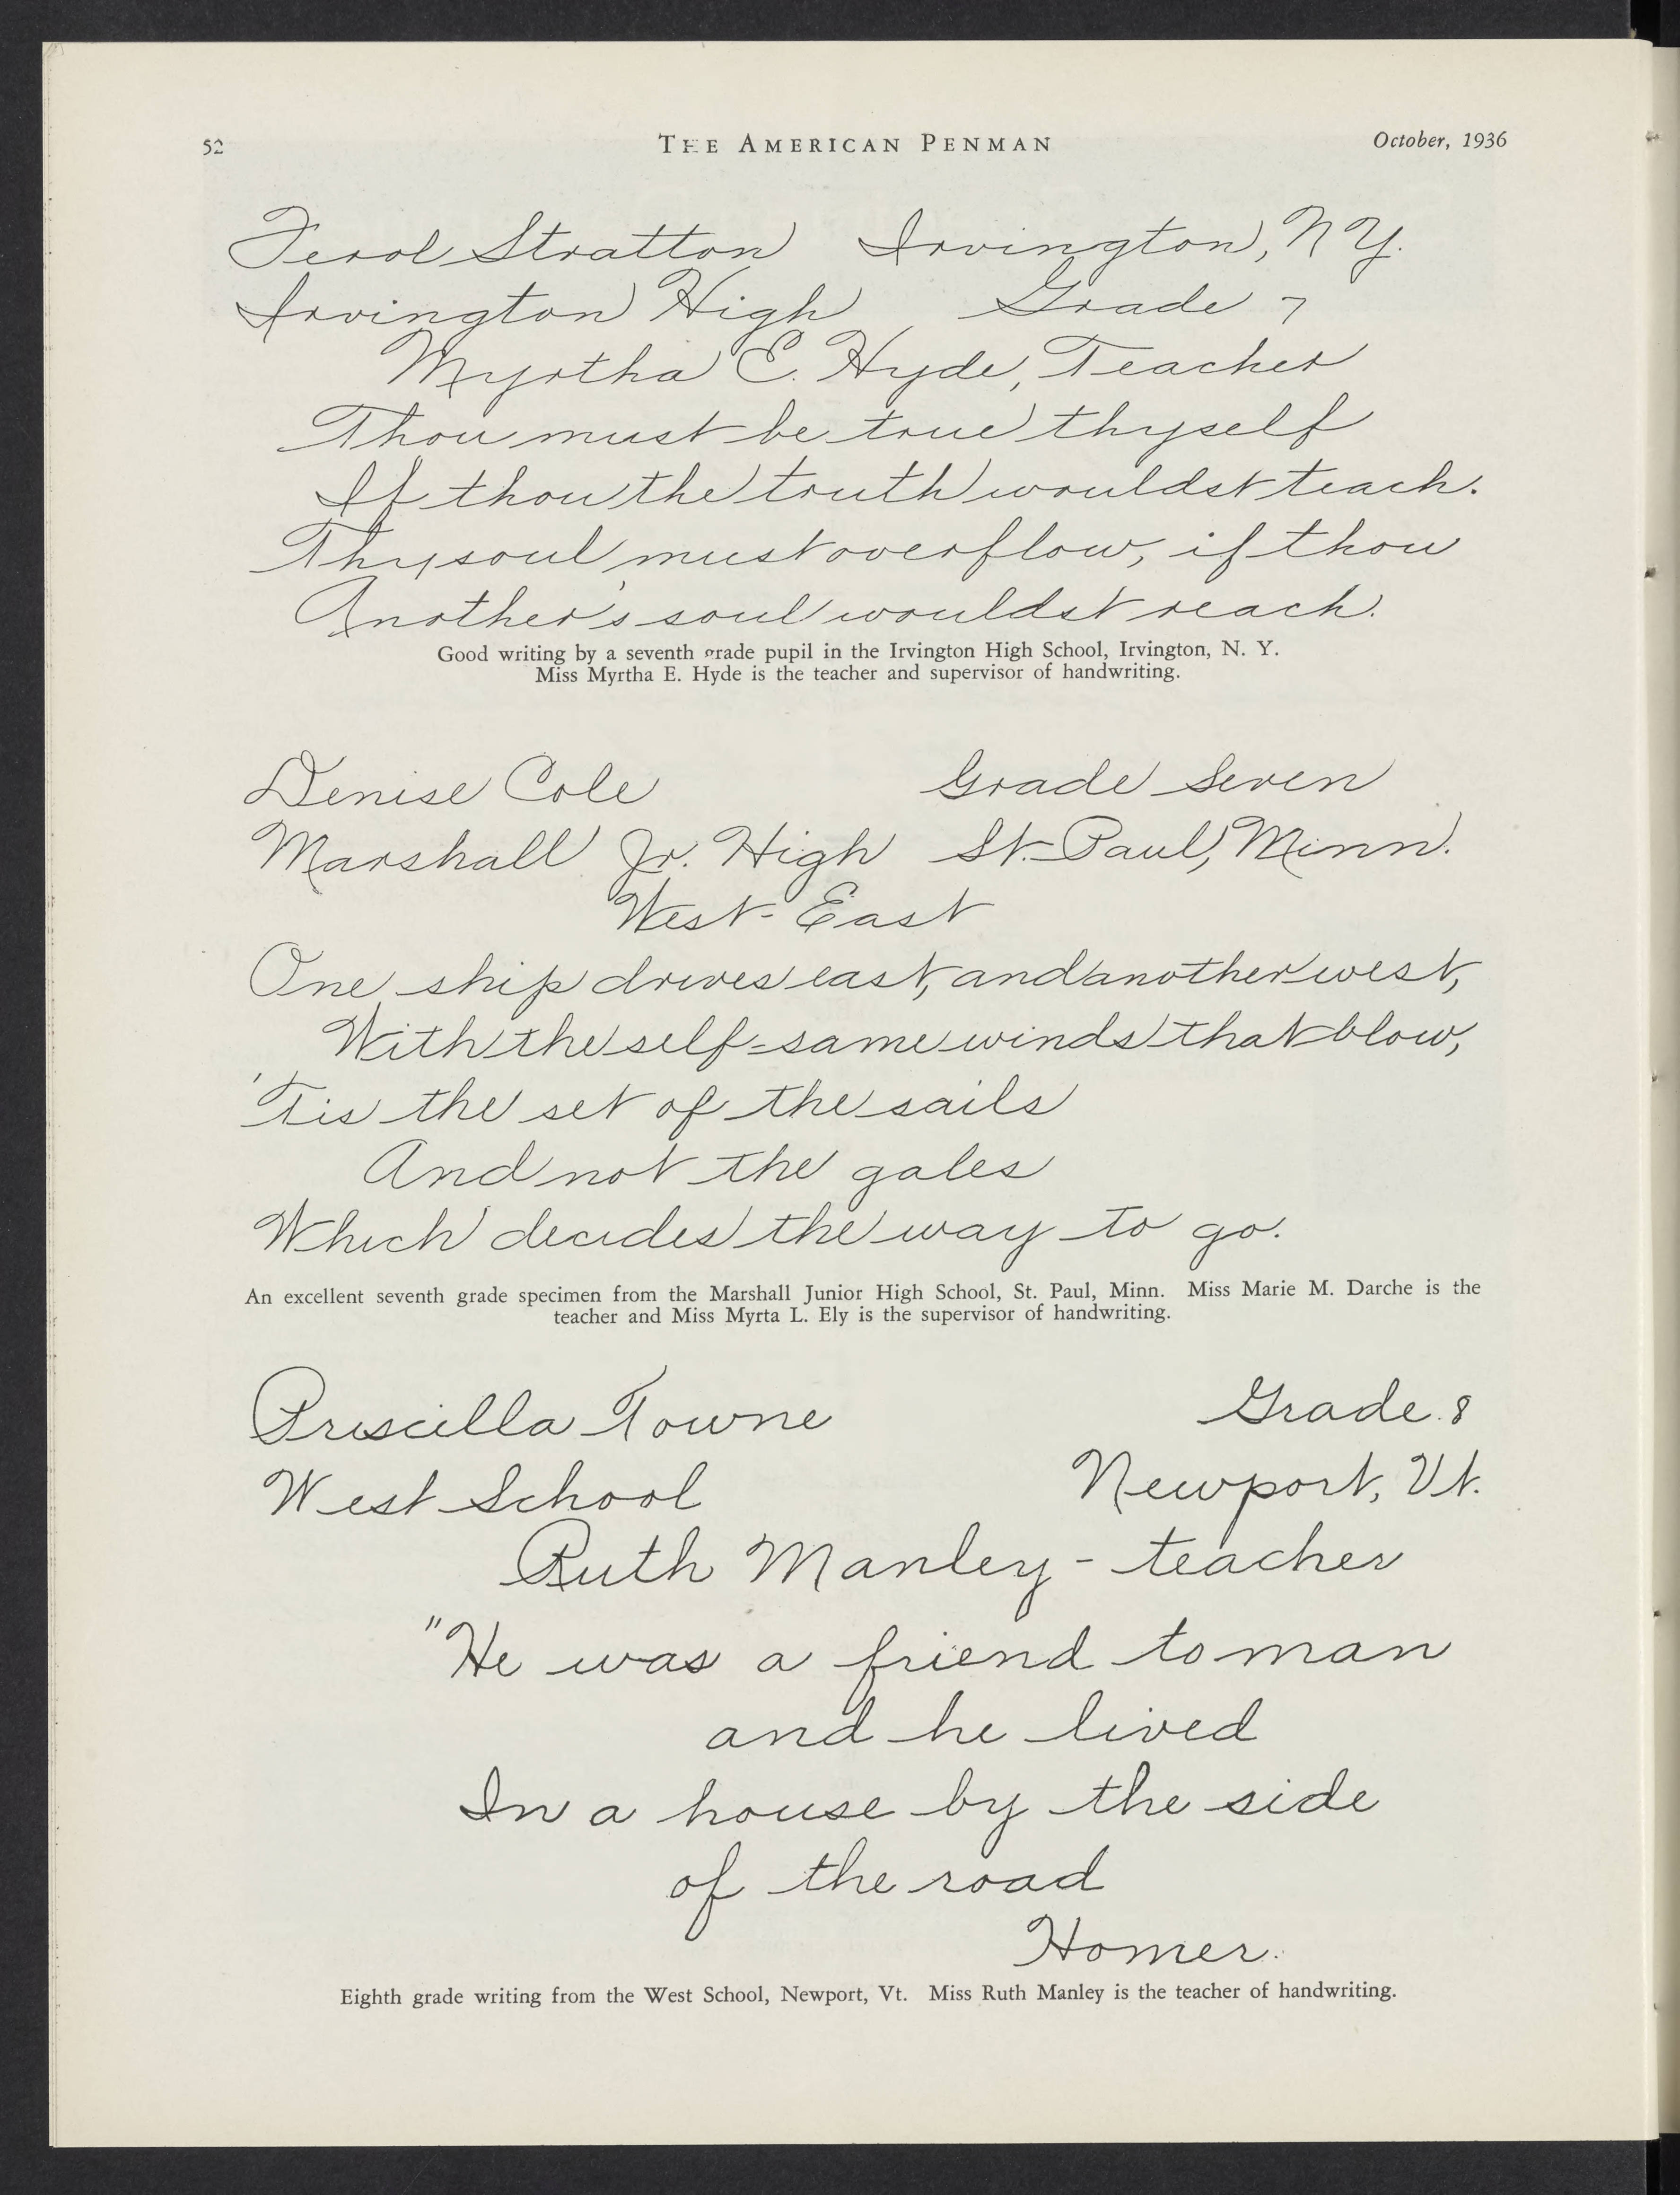 52
THE AMERICAN PENMAN
October, 1936
Ferol Stratton Irvington, N Y.
Irvington High Grade 7
Myrtha E. Hyde, Teacher
Thou must be true thyself
If thou the truth wouldst teach.
Thy soul must overflow, if thou
Another's soul wouldst reach.
Good writing by a seventh grade pupil in the Irvington High School, Irvington, N. Y.
Miss Myrtha E. Hyde is the teacher and supervisor of handwriting.
Denise Cole Grade Seven
Marshall Jr. High St. Paul, Minn.
West - East
One ship drives east, and another west,
With the self-same winds that blow,
'Tis the set of the sails
And not the gales
Which decides the way to go.
An excellent seventh grade specimen from the Marshall Junior High School, St. Paul, Minn. Miss Marie M. Darche is the
teacher and Miss Myrta L. Ely is the supervisor of handwriting.
Priscilla Towne Grade 8
West School Newport, Vt.
Ruth Manley - teacher
"He was a friend to man
and he lived
In a house by the side
of the road
Homer.
Eighth grade writing from the West School, Newport, Vt. Miss Ruth Manley is the teacher of handwriting.